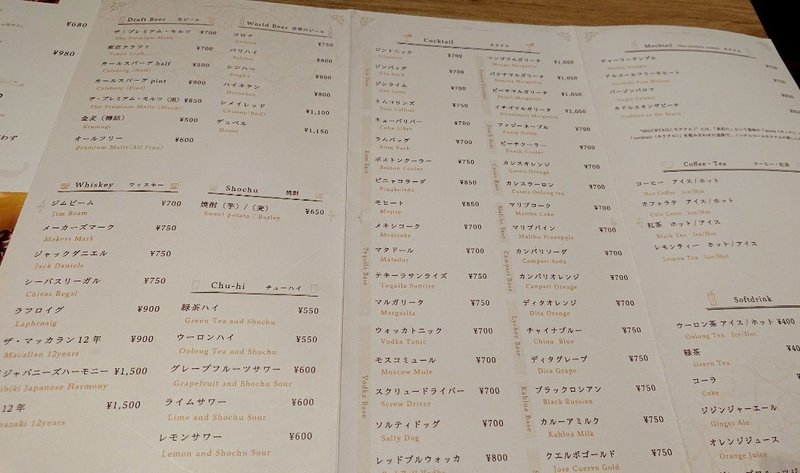 ¥680
¥980
Draft Beer 生ビール
ザ・プレミアム・モルツ ¥700
The Premium Malts
東京クラフト ¥700
Tokyo Craft
カールスバーグ half ¥500
Carlsberg (Half)
カールスバーグ pint ¥900
ザ・プレミアム・モルツ (黒) ¥850
The Premium Malts (Black)
金麦 (樽詰) ¥500
Kinmugi
オールフリー ¥600
Premium Malts(All Free)
World Beer 世界のビール
コロナ ¥750
バリハイ ¥800
Balihai
シンハー ¥800
ハイネケン ¥800
シメイレッド ¥1,100
Chimay(Red)
デュベル ¥1,150
Duvel
Whiskey ウィスキー
ジムビーム ¥700
Jim Beam
メーカーズマーク ¥750
Makers Mark
ジャックダニエル ¥750
Jack Daniels
シーバスリーガル ¥750
Chivas Regal
ラフロイグ ¥900
Laphroaig
ザ・マッカラン 12年 ¥900
Macallan 12years
ジャパニーズハーモニー ¥1,500
Hibiki Japanese Harmony
12年 ¥1,500
azaki 12years
Shochu 焼酎
焼酎 (芋) / (麦) ¥650
Sweet potato / Barley
Chu-hi チューハイ
緑茶ハイ ¥550
Green Tea and Shochu
ウーロンハイ ¥550
Oolong Tea and Shochu
グレープフルーツサワー ¥600
Grapefruit and Shochu Sour
ライムサワー ¥600
Lime and Shochu Sour
レモンサワー ¥600
Lemon and Shochu Sour
Cocktail カクテル
ジントニック ¥700
ジンバック ¥700
Gin Buck
ジンライム ¥700
Gin Lime
トムコリンズ ¥700
Tom Collins
キューバリバー ¥700
Cuba Libre
ラムバック ¥700
Rum Buck
ボストンクーラー ¥750
Boston Cooler
ピニャコラーダ ¥850
Pinakolada
モヒート ¥850
Mojito
メキシコーク ¥700
Mexicoke
マタドール ¥700
Matador
テキーラサンライズ ¥750
Tequila Sunrise
マルガリータ ¥750
Margarita
ウォッカトニック ¥700
Vodka Tonic
モスコミュール ¥700
Moscow Mule
スクリュードライバー ¥700
Screw Driver
ソルティドッグ ¥700
Salty Dog
レッドブルウォッカ ¥800
Rum Base
Tequila Base
Vodka Base
マンゴマルガリータ ¥1,050
Mango Margarita
バナナマルガリータ ¥1,050
Banana Margarita
ピーチマルガリータ ¥1,050
Peach Margarita
イチゴマルガリータ ¥1,050
ファジーネーブル ¥700
Fuzzy Navel
ピーチクーラー ¥700
Peach Cooler
カシスオレンジ ¥700
Cassis Orange
カシスウーロン ¥700
Cassis Oolong tea
マリブコーク ¥750
Malibu Coke
マリブパイン ¥750
Malibu Pineapple
カンパリソーダ ¥700
Campari Soda
カンパリオレンジ ¥700
Campari Orange
ディタオレンジ ¥700
Dita Orange
チャイナブルー ¥750
China Blue
ディタグレープ ¥750
Dita Grape
ブラックロシアン ¥700
Black Russian
カルーアミルク ¥750
Kahlua Milk
クエルボゴールド ¥750
Jose Cuervo Gold
Malibu Base
Campari Base
Lychee Base
Kahlua Base
Mocktail
チャーリーテンプル
アルコールフリーモヒート
バージンパロマ
Coffee・Tea コーヒー・紅茶
コーヒー アイス/ホット
Hot Coffee Ice/Hot
カフェラテ アイス/ホット
Cafe Latte Ice/Hot
紅茶 ホット/アイス
Black Tea Ice/Hot
レモンティー ホット/アイス
Lemon Tea Ice/Hot
Softdrink
ウーロン茶 アイス/ホット ¥400
Oolong Tea Ice/Hot
緑茶
Green Tea
コーラ
Coke
ジンジャーエール
Ginger Ale
オレンジジュース
Orange Juice